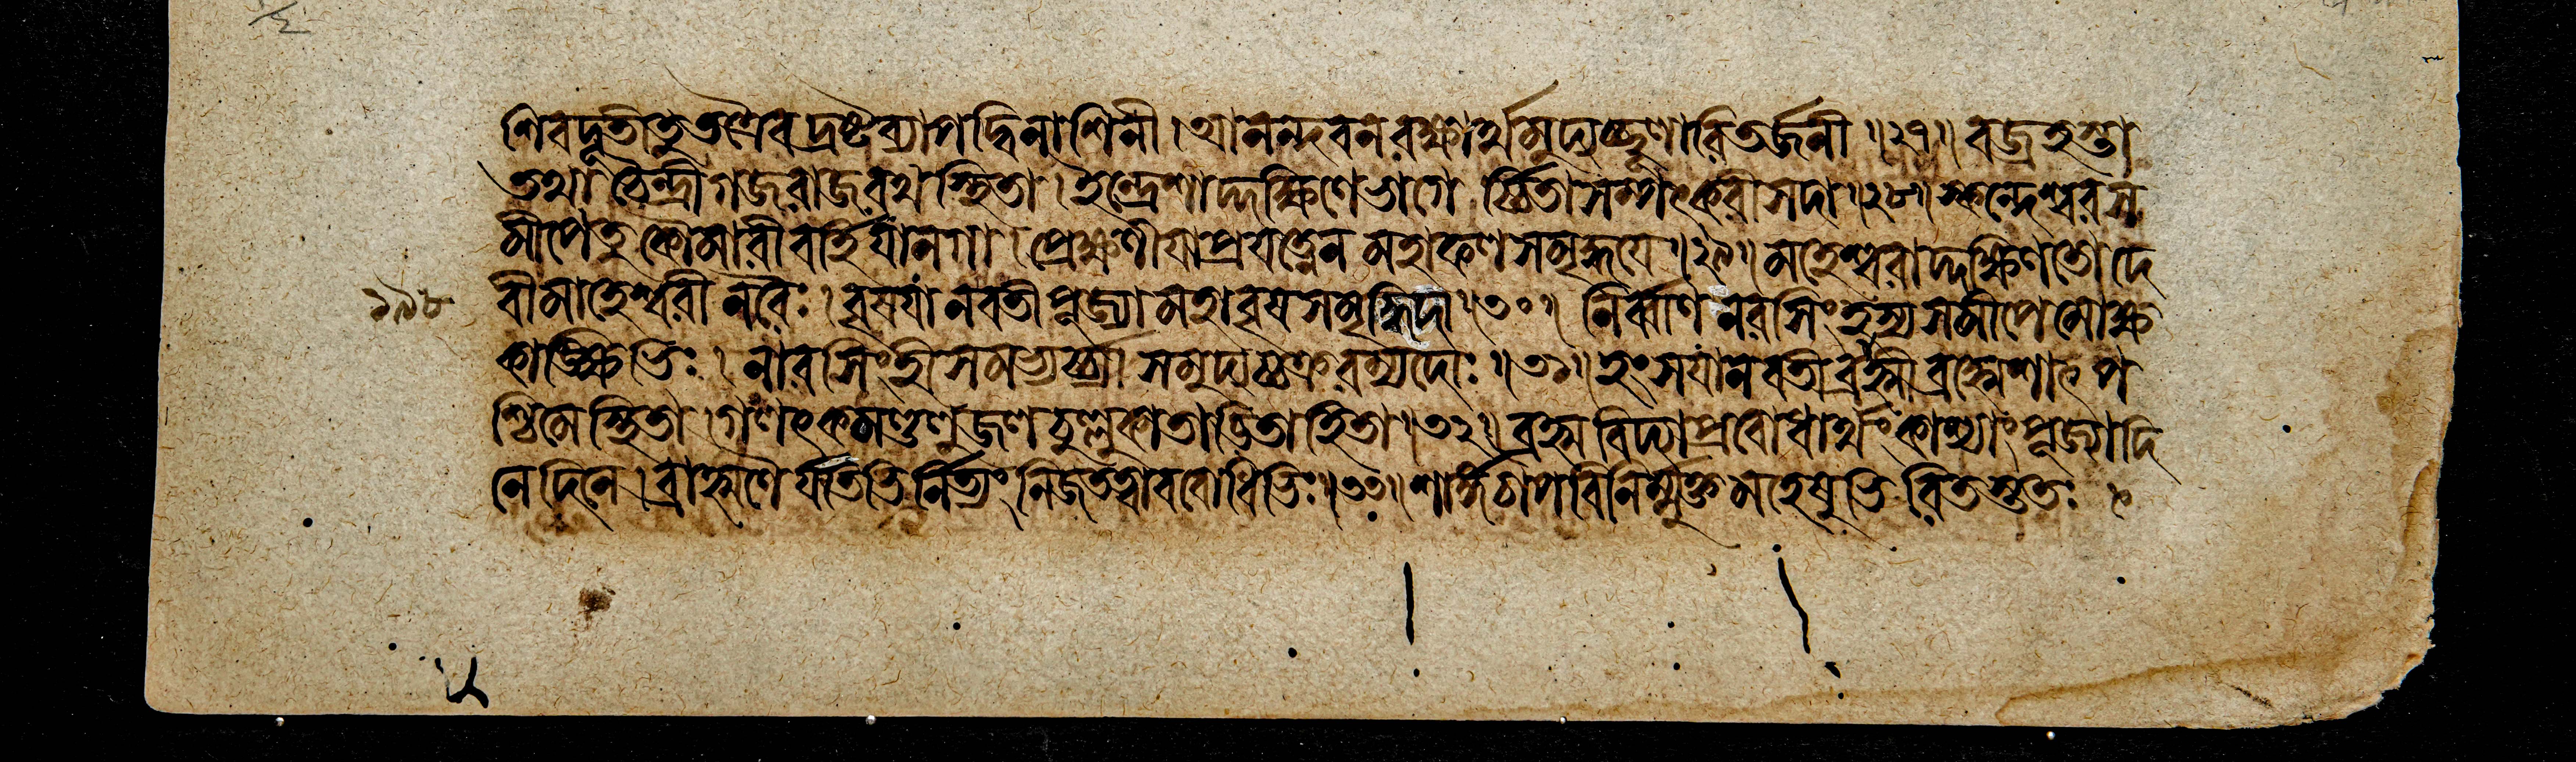 শিবদূতী তু তত্রৈব দ্রষ্টব্যাপদ্বিনাশিনী । আনন্দবনরক্ষার্থমুদ্যচ্ছূলারিতর্জনী ॥ ২৭ ॥ বজ্রহস্তা
তথা চৈন্দ্রী গজরাজরথস্থিতা । ইন্দ্রেশাদ্দক্ষিণেভাগে র্চ্চিতা সম্পৎকরী সদা ॥ ২৮ ॥ স্কন্দেশ্বরস
মীপে তু কৌমারী বর্হিযানগা । প্রেক্ষণীয়া প্রযত্নেন মহাফলসমৃদ্ধয়ে ॥ ২৯ ॥ মহেশ্বরাদ্দক্ষিণতো দে
১৯৮ বী মাহেশ্বরী নরৈঃ । বৃষযানবতী পূজ্যা মহাবৃষসমৃদ্ধিদা ॥ ৩০ ॥ নির্ব্বাণনরসিংহস্য সমীপে মোক্ষ
কাঙ্ক্ষিভিঃ । নারসিংহী সমভ্যর্চ্চ্যা সমুদ্যচ্চক্ররম্যদোঃ ॥ ৩১ ॥ হংসযানবতী ব্রাহ্মী ব্রহ্মেশাৎ প
শ্চিমে স্থিতা । গলৎকমণ্ডলুজলচুলুকাতাড়িতাহিতা ॥ ৩২ ॥ ব্রহ্মবিদ্যাপ্রবোধার্থং কাশ্যাং পূজ্যা দি
নে দিনে । ব্রাহ্মণৈর্যতিভির্নিত্যং নিজতত্ত্বাববোধিভিঃ ॥ ৩৩ ॥ শার্ঙ্গচাপবিনির্ম্মুক্তমহেষুভিরিতস্ততঃ ।